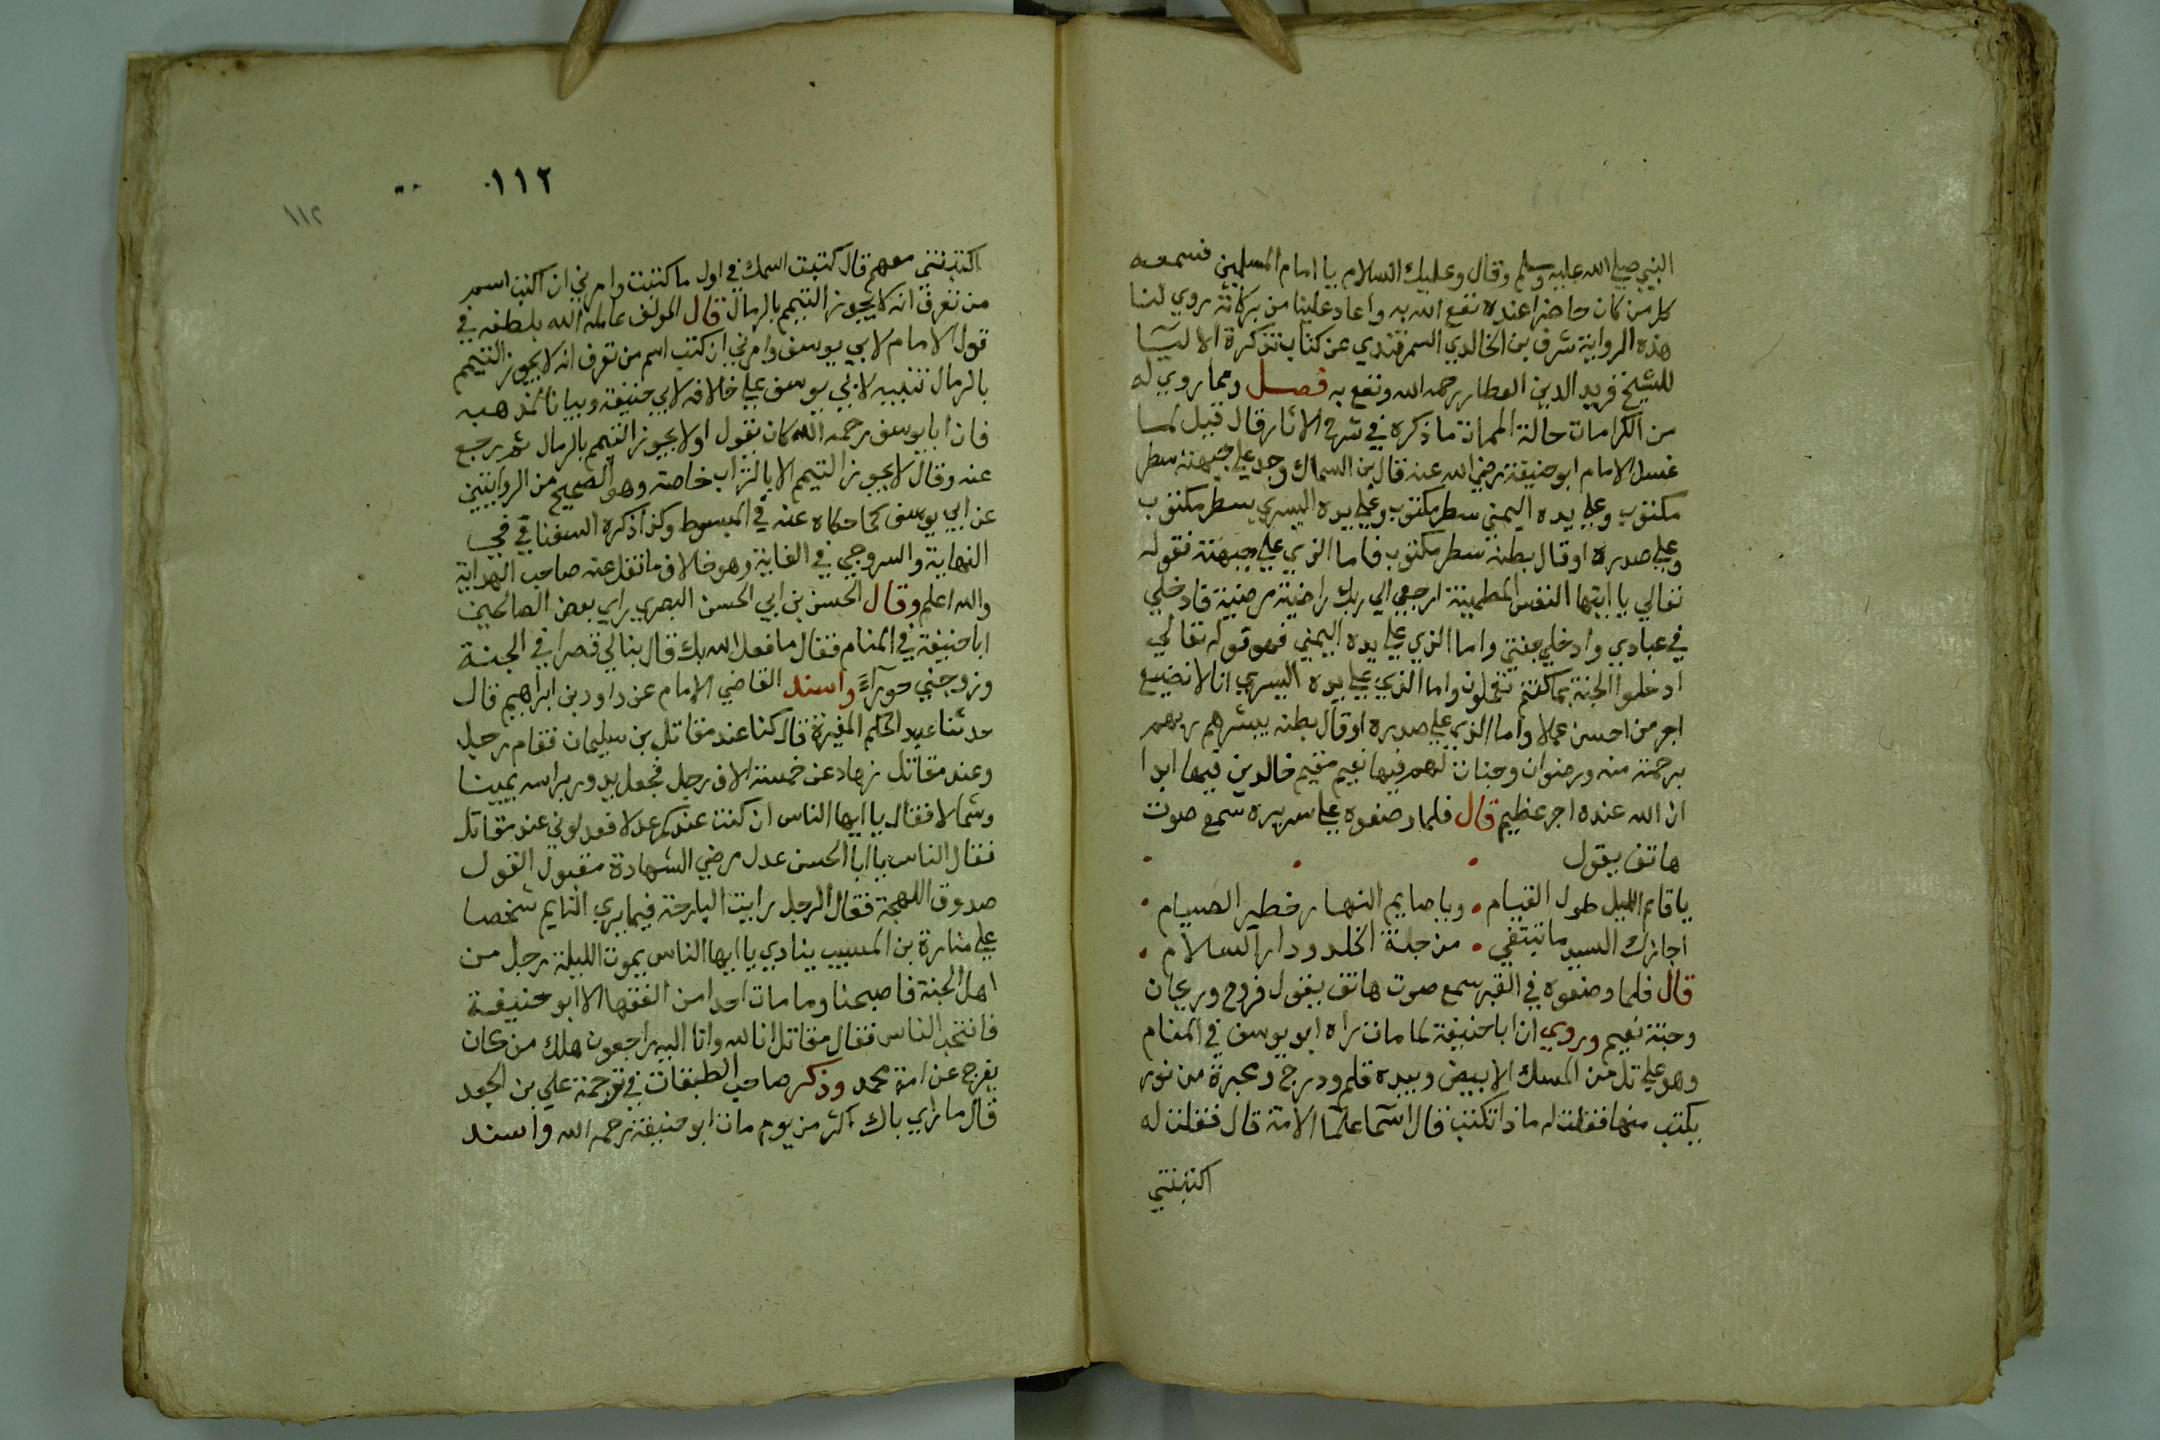 النبي صلي الله عليه وسلم وقال وعليك السلام يا امام المسلمين فسمعه
كل من كان حاضرا عنده نفع الله به واعاد علينا من بركاته روي لنا
هذه الرواية شرف بن الخالدي السمرقندي عن كتاب تذكرة الاوليا
للشيخ فريد الدين العطار رحمه الله ونفع به فصل ومما روي له
من الكرامات حالة الممات ما ذكره في شرح الاثار قال قيل لما
غسل الامام ابو حنيفة رضي الله عنه قال بن السماك وجد علي جبهته سطر
مكتوب وعلي يده اليمني سطر مكتوب وعلي يده اليسري سطر مكتوب
وعلي صدره او قال بطنه سطر مكتوب فاما الذي علي جبهته فقوله
تعالي يا ايتها النفس المطمينة ارجعي الي ربك راضية مرضية فادخلي
في عبادي وادخلي جنتي واما الذي علي يده اليمني فهو قوله تعالي
ادخلوا الجنة بما كنتم تعملون واما الذي علي يده اليسري انا لا نضيع
اجر من احسن عملا واما الذي علي صدره او قال بطنه يبشرهم ربهم
برحمة منه ورضوان وجنات لهم فيها نعيم مقيم خالدين فيها ابدا
ان الله عنده اجر عظيم قال فلما وضعوه علي سريره سمع صوت
هاتف يقول
يا قايم الليل طول القيام • ويا صايم النهار خطير الصيام •
اجازك السيد ما تبتغي • من جنة الخلد ودار السلام •
قال فلما وضعوه في القبر سمع صوت هاتف يقول فروح وريحان
وجنة نعيم وروي ان ابا حنيفة لما مات راه ابو يوسف في المنام
وهو علي تل من المسك الابيض وبيده قلم ودرج ومحبرة من نور
يكتب منها فقلت له ماذا تكتب قال اسما علما الامة قال فقلت له
اكتبتني
١١٢
١١٢
اكتبتني معهم قال كتبت اسمك في اول ما كتبت وامرني ان اكتب اسم
من تعرف انه لا يجوز التيمم بالرمال قال المولف عامله الله بلطفه في
قول الامام لابي يوسف وامرني ان كتب اسم من تعرف انه لا يجوز التيمم
بالرمال تنبيه لابي يوسف علي خلافه لابي حنيفة وبيانا لمذهبه
فان ابا يوسف رحمه الله كان يقول اولا يجوز التيمم بالرمال ثم رجع
عنه وقال لا يجوز التيمم الا بالتراب خاصة وهو الصحيح من الروايتين
عن ابي يوسف كما حكاه عنه في المبسوط وكذا ذكره السغناقي في
النهاية والسروجي في الغاية وهو خلاف ما نقل عنه صاحب الهداية
والله اعلم وقال الحسن بن ابي الحسن البصري راي بعض الصالحين
ابا حنيفة في المنام فقال ما فعل الله بك قال بنا لي قصرا في الجنة
وزوجني حوراء واسند القاضي الامام عن داود بن ابراهيم قال
حدثنا عبد الحكم المغيرة قال كنا عند مقاتل بن سليمان فقام رجل
وعند مقاتل زهاد عن خمسة الاف رجل فجعل يدور براسه يمينا
وشمالا فقال يا ايها الناس ان كنت عندكم عدلا فعدلوني عند مقاتل
فقال الناس يا ابا الحسن عدل مرضي الشهادة مقبول القول
صدوق اللهجة فقال الرجل رايت البارحة فيما يري النايم شخصا
علي منارة بن المسيب ينادي يا ايها الناس يموت الليلة رجل من
اهل الجنة فاصبحنا وما مات احدا من الفقها الا ابو حنيفة
فانتحب الناس فقال مقاتل انا لله وانا اليه راجعون هلك من كان
يفرج عن امة محمد وذكر صاحب الطبقات في ترجمة علي بن الجعد
قال ما راي باك اكثر من يوم مات ابو حنيفة رحمه الله واسند